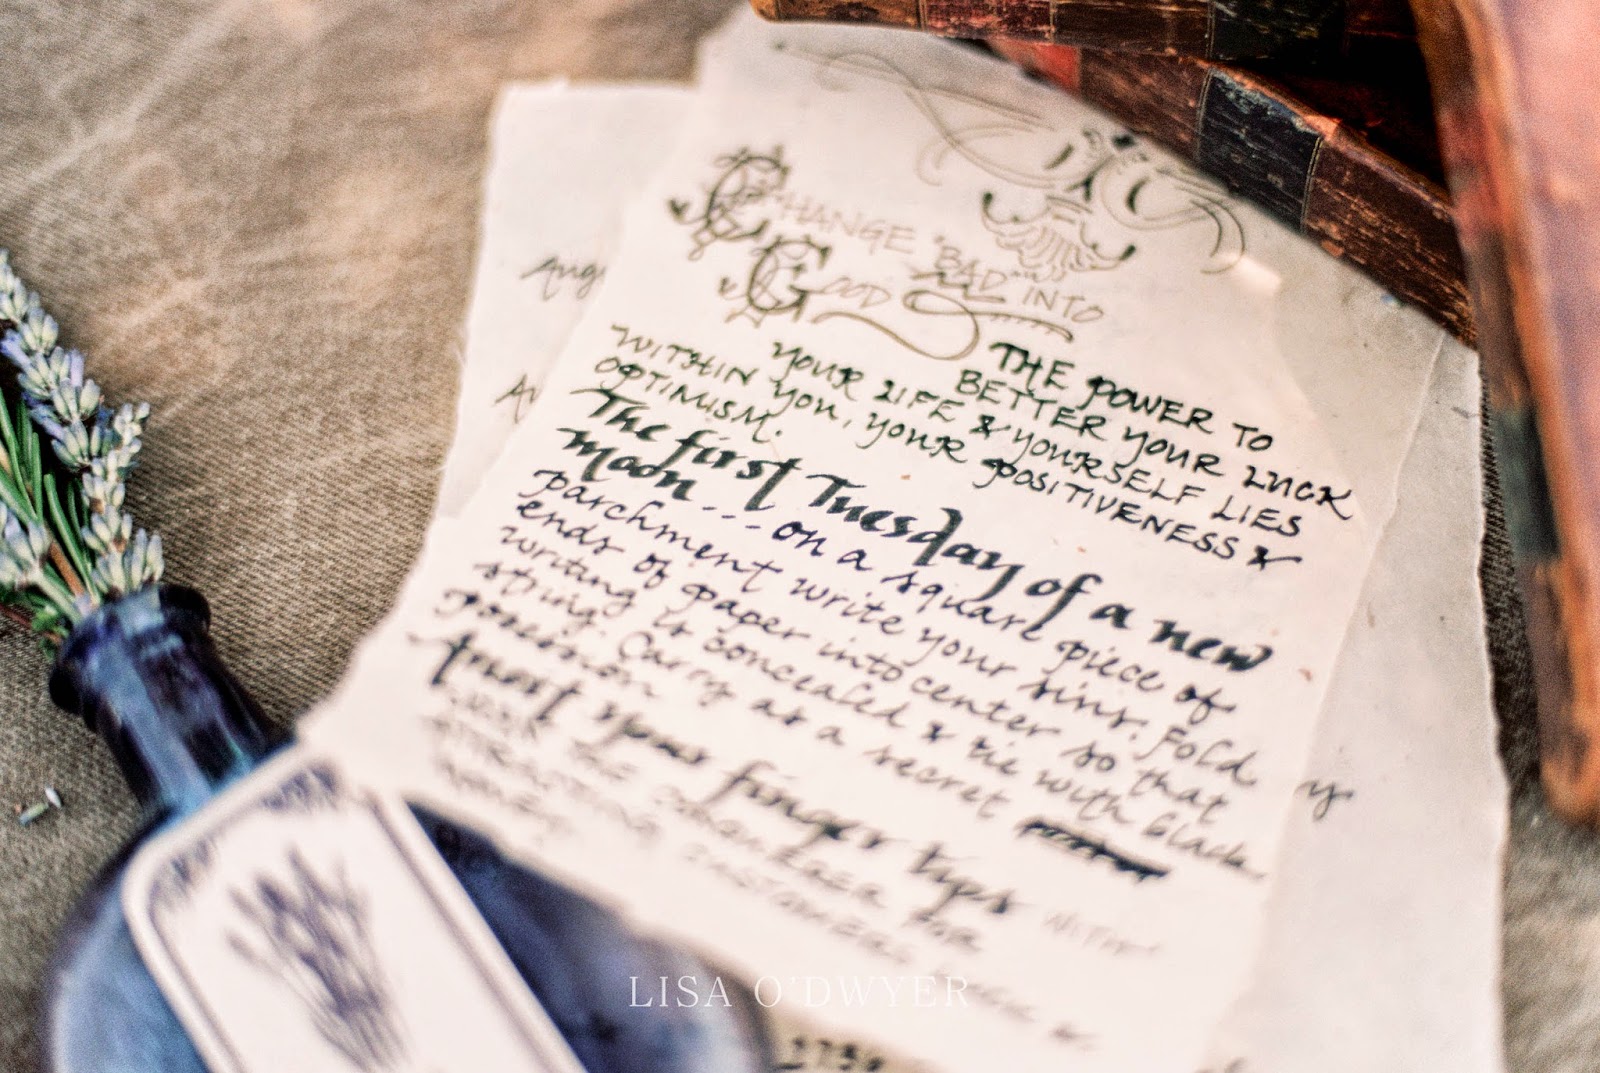 CHANGE "BAD" INTO
GOOD
THE POWER TO
BETTER YOUR LUCK
YOUR LIFE & YOURSELF LIES
WITHIN YOU, YOUR POSITIVENESS &
OPTIMISM.
The first Tuesday of a new
moon - - - on a square piece of
parchment write your sins. Fold
ends of paper into center so that
writing is concealed & tie with black
string. Carry as a secret
possession
Anoint your finger tips WITH
FOR
ATTRACTING CUSTOMERS
MONEY
Aug
y
LISA O'DWYER